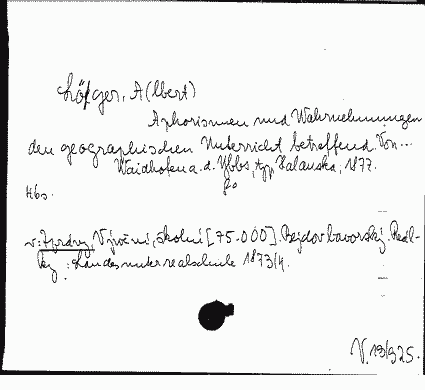 Löger, A(lbert)
Aphorismen und Wahrnehmungen
den geographischen Unterricht betreffend. Von...
Waidhofen a. d. Ybbs, typ. Halauska, 1877.
8°
4bs.
v: Zprávy, Výroční, školní [75.000]. Bejdov bavorský. Reál-
ky : Landesunterrealschule 1873/4.
V. 19/925.